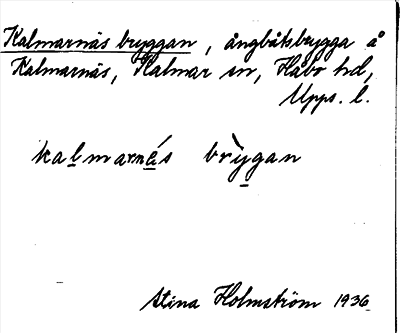 Kalmarnäs bryggan, ångbåtsbrygga å
Kalmarnäs, Kalmar sn, Håbo hd,
Upps. l.
kalmarnés brỳgan
Stina Holmström 1936